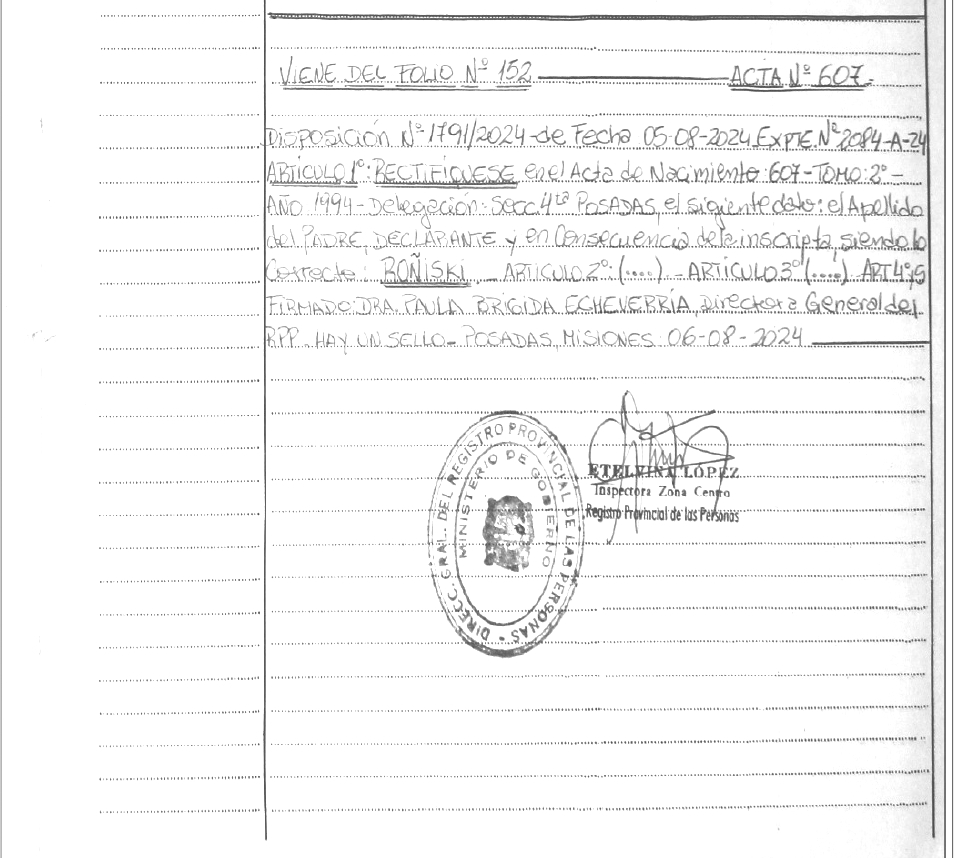 VIENE DEL FOLIO Nº 152 ACTA Nº 607.-
Disposición Nº 1791/2024 - de Fecha 05-08-2024 EXPTE. Nº 2084-A-24
ARTICULO 1º: RECTIFÍQUESE en el Acta de Nacimiento: 607 - TOMO: 2º -
AÑO 1994 - Delegación: Secc. 4ta POSADAS, el siguiente dato: el Apellido
del PADRE, DECLARANTE y en Consecuencia de la inscripta, siendo lo
Correcto: BOÑISKI - ARTICULO 2º: (....) - ARTICULO 3º (....) ART 4º; 5
FIRMADO: DRA. PAULA BRIGIDA ECHEVERRÍA, Directora General del
RPP. HAY UN SELLO - POSADAS, MISIONES: 06-08-2024
DIRECC. GRAL. DEL REGISTRO PROVINCIAL DE LAS PERSONAS
MINISTERIO DE GOBIERNO
ETELVINA LÓPEZ
Inspectora Zona Centro
Registro Provincial de las Personas